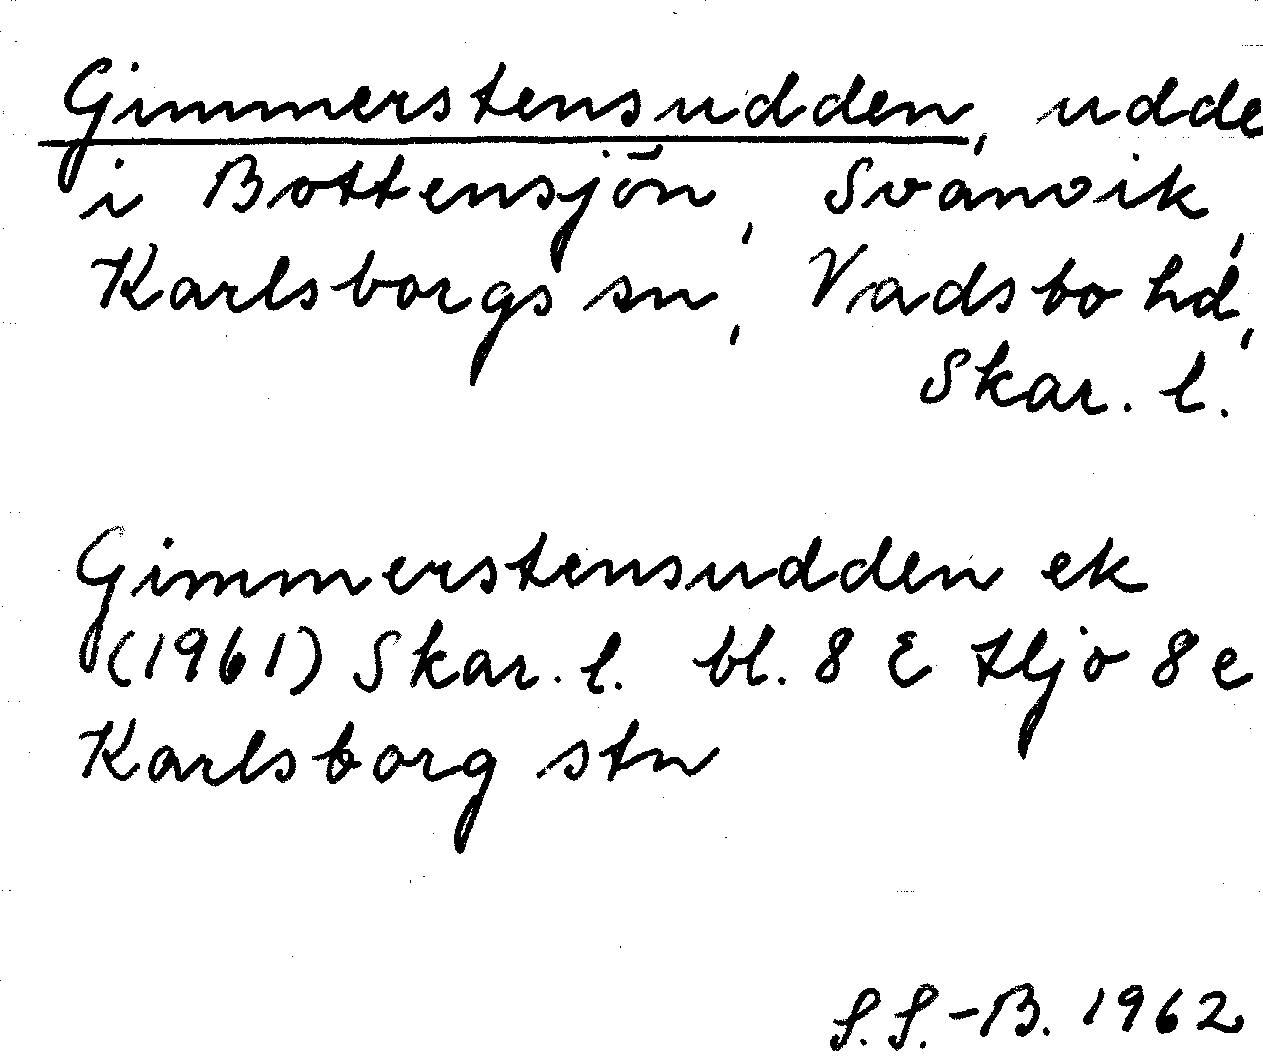 Gimmerstensudden, udde
i Bottensjön, Svanvik,
Karlsborgs sn, Vadsbo hd,
Skar. l.
Gimmerstensudden ek
(1961) Skar. l. bl. 8 E Hjo 8 e
Karlsborg stn
S.S.-B. 1962